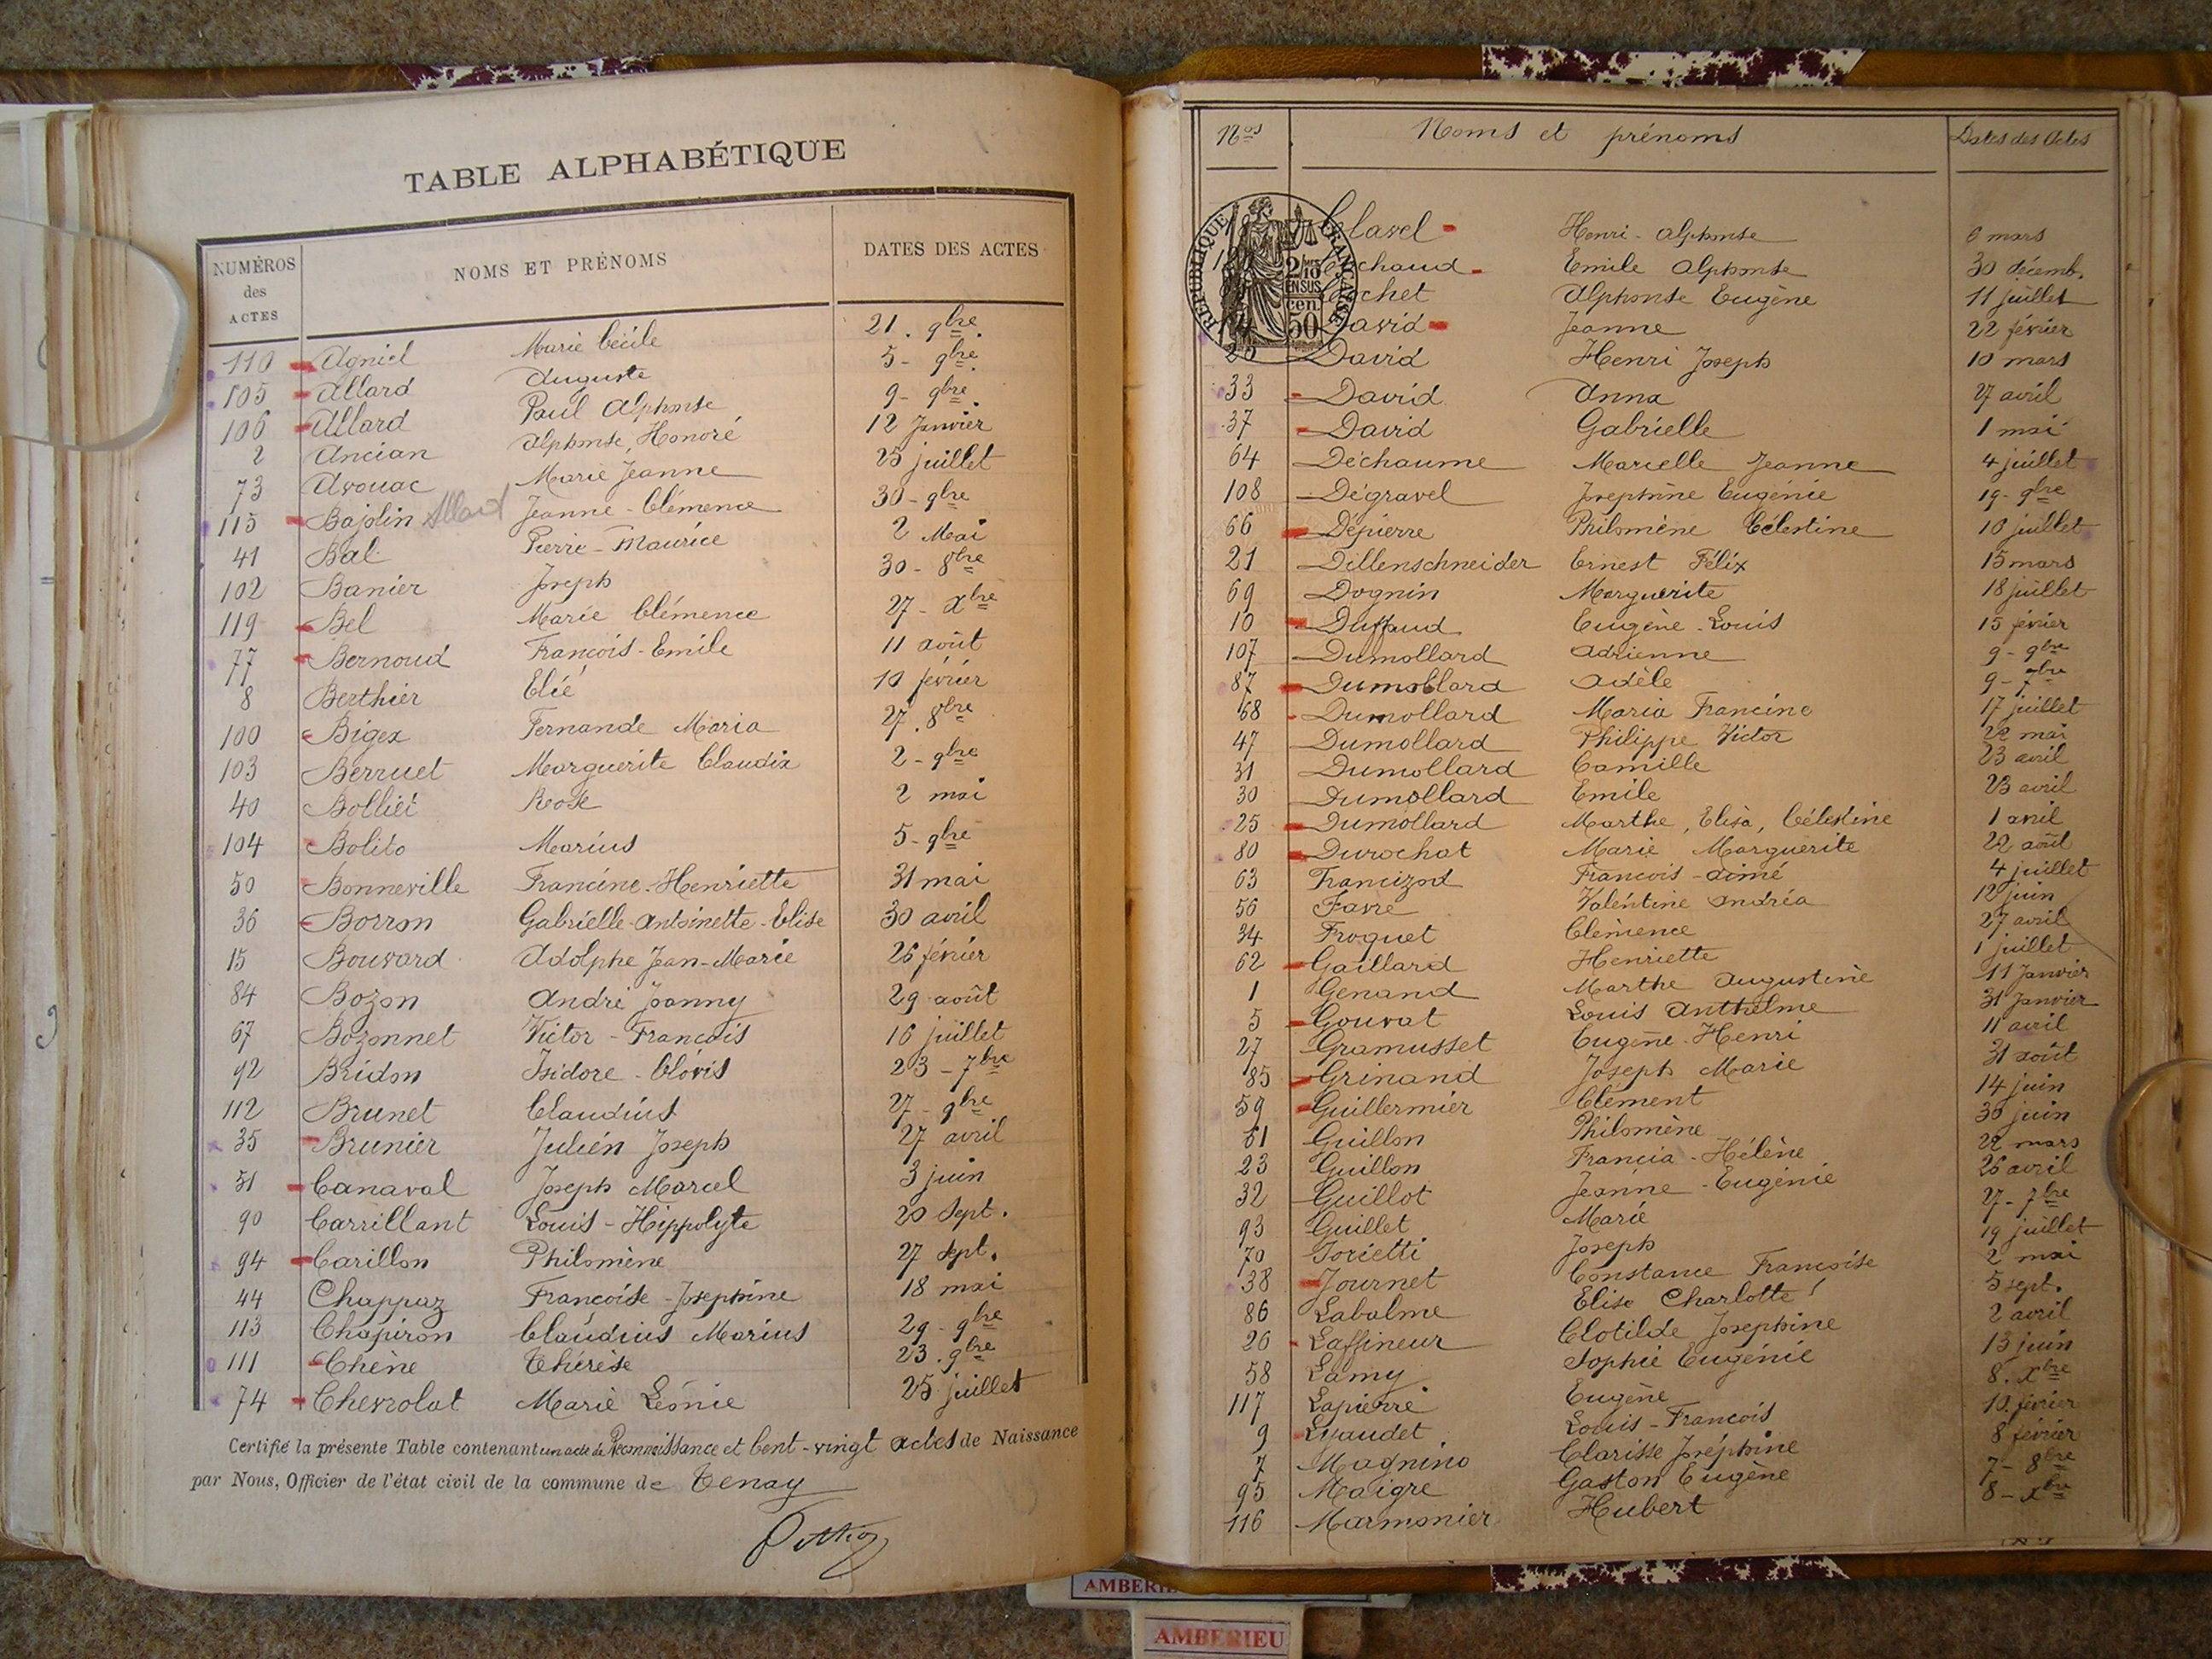 TABLE ALPHABÉTIQUE
NUMÉROS des ACTES NOMS ET PRÉNOMS DATES DES ACTES
110 Agniel Marie Cécile 21. 9bre.
105 Allard Auguste 5 - 9bre.
106 Allard Paul Alphonse 9 - 9bre.
2 Ancian Alphonse Honoré 12 Janvier
73 Avouac Marie Jeanne 25 juillet
115 Bajolin Allard Jeanne - Clémence 30 - 9bre
41 Bal Pierre - Maurice 2 Mai
102 Banier Joseph 30 - 8bre
119 Bel Marie Clémence 27 - Xbre
77 Bernoud François - Emile 11 août
8 Berthier Elié 10 février
100 Bigex Fernande Maria 27. 8bre
103 Berruet Marguerite Claudia 2 - 9bre
40 Bolliet Rose 2 mai
104 Bolito Marius 5 - 9bre
50 Bonneville Francine - Henriette 31 mai
36 Borron Gabrielle - Antoinette - Elise 30 avril
15 Bouvard Adolphe Jean - Marie 26 février
84 Bozon André Joanny 29 août
67 Bozonnet Victor - François 16 juillet
92 Bridon Isidore - Clovis 23 - 7bre
112 Brunet Claudius 27 - 9bre
35 Brunier Julien Joseph 27 avril
51 Canaval Joseph Marcel 3 juin
90 Carrillant Louis - Hippolyte 20 Sept.
94 Carillon Philomène 27 Sept.
44 Chappaz Françoise - Joséphine 18 mai
113 Chapiron Claudius Marius 29 - 9bre
111 Chêne Thérèse 23. 9bre
74 Chevrolat Marie Léonie 25 juillet
Certifié la présente Table contenant un acte de Reconnaissance et Cent - vingt actes de Naissance
par Nous, Officier de l'état civil de la commune de Tenay
Nos Noms et prénoms Dates des Actes
RÉPUBLIQUE FRANÇAISE
2/10 EN SUS
50 cen
Clavel Henri - Alphonse 6 mars
chaud Emile Alphonse 30 décemb.
chet Alphonse Eugène 11 juillet
14 David Jeanne 22 février
20 David Henri Joseph 10 mars
33 David Anna 27 avril
37 David Gabrielle 1 mai
64 Déchaume Marcelle Jeanne 4 juillet
108 Dégravel Joséphine Eugénie 19 - 9bre
66 Dépierre Philomène Célestine 10 juillet
21 Dillenschneider Ernest Félix 15 mars
69 Dognin Marguerite 18 juillet
10 Duffaud Eugène - Louis 15 février
107 Dumollard Adrienne 9 - 9bre
87 Dumollard Adèle 9 - 7bre
68 Dumollard Maria Francine 17 juillet
47 Dumollard Philippe Victor 22 mai
31 Dumollard Camille 23 avril
30 Dumollard Emile 23 avril
25 Dumollard Marthe, Elisa, Célestine 1 avril
80 Durochat Marie Marguerite 22 août
63 Francizod François - Aimé 4 juillet
56 Favre Valentine Andréa 12 juin
34 Froquet Clémence 27 avril
62 Gaillard Henriette 1 juillet
1 Genand Marthe Augustine 11 Janvier
5 Gouvat Louis Anthelme 31 Janvier
27 Gramusset Eugène - Henri 11 avril
85 Grinand Joseph Marie 31 août
59 Guillermier Clément 14 juin
61 Guillon Philomène 30 juin
23 Guillon Francia - Hélène 22 mars
32 Guillot Jeanne - Eugénie 26 avril
93 Guillet Marie 27 - 7bre
70 Iorietti Joseph 19 juillet
38 Journet Constance Françoise 2 mai
86 Labalme Elise Charlotte 5 sept.
26 Laffineur Clotilde Joséphine 2 avril
58 Lamy Sophie Eugénie 13 juin
117 Lapierre Eugène 8. Xbre
9 Luaudet Louis - François 10 février
7 Magnino Clarisse Joséphine 8 février
95 Maigre Gaston Eugène 7 - 8bre
116 Marmonier Hubert 8 - Xbre
AMBERIEU